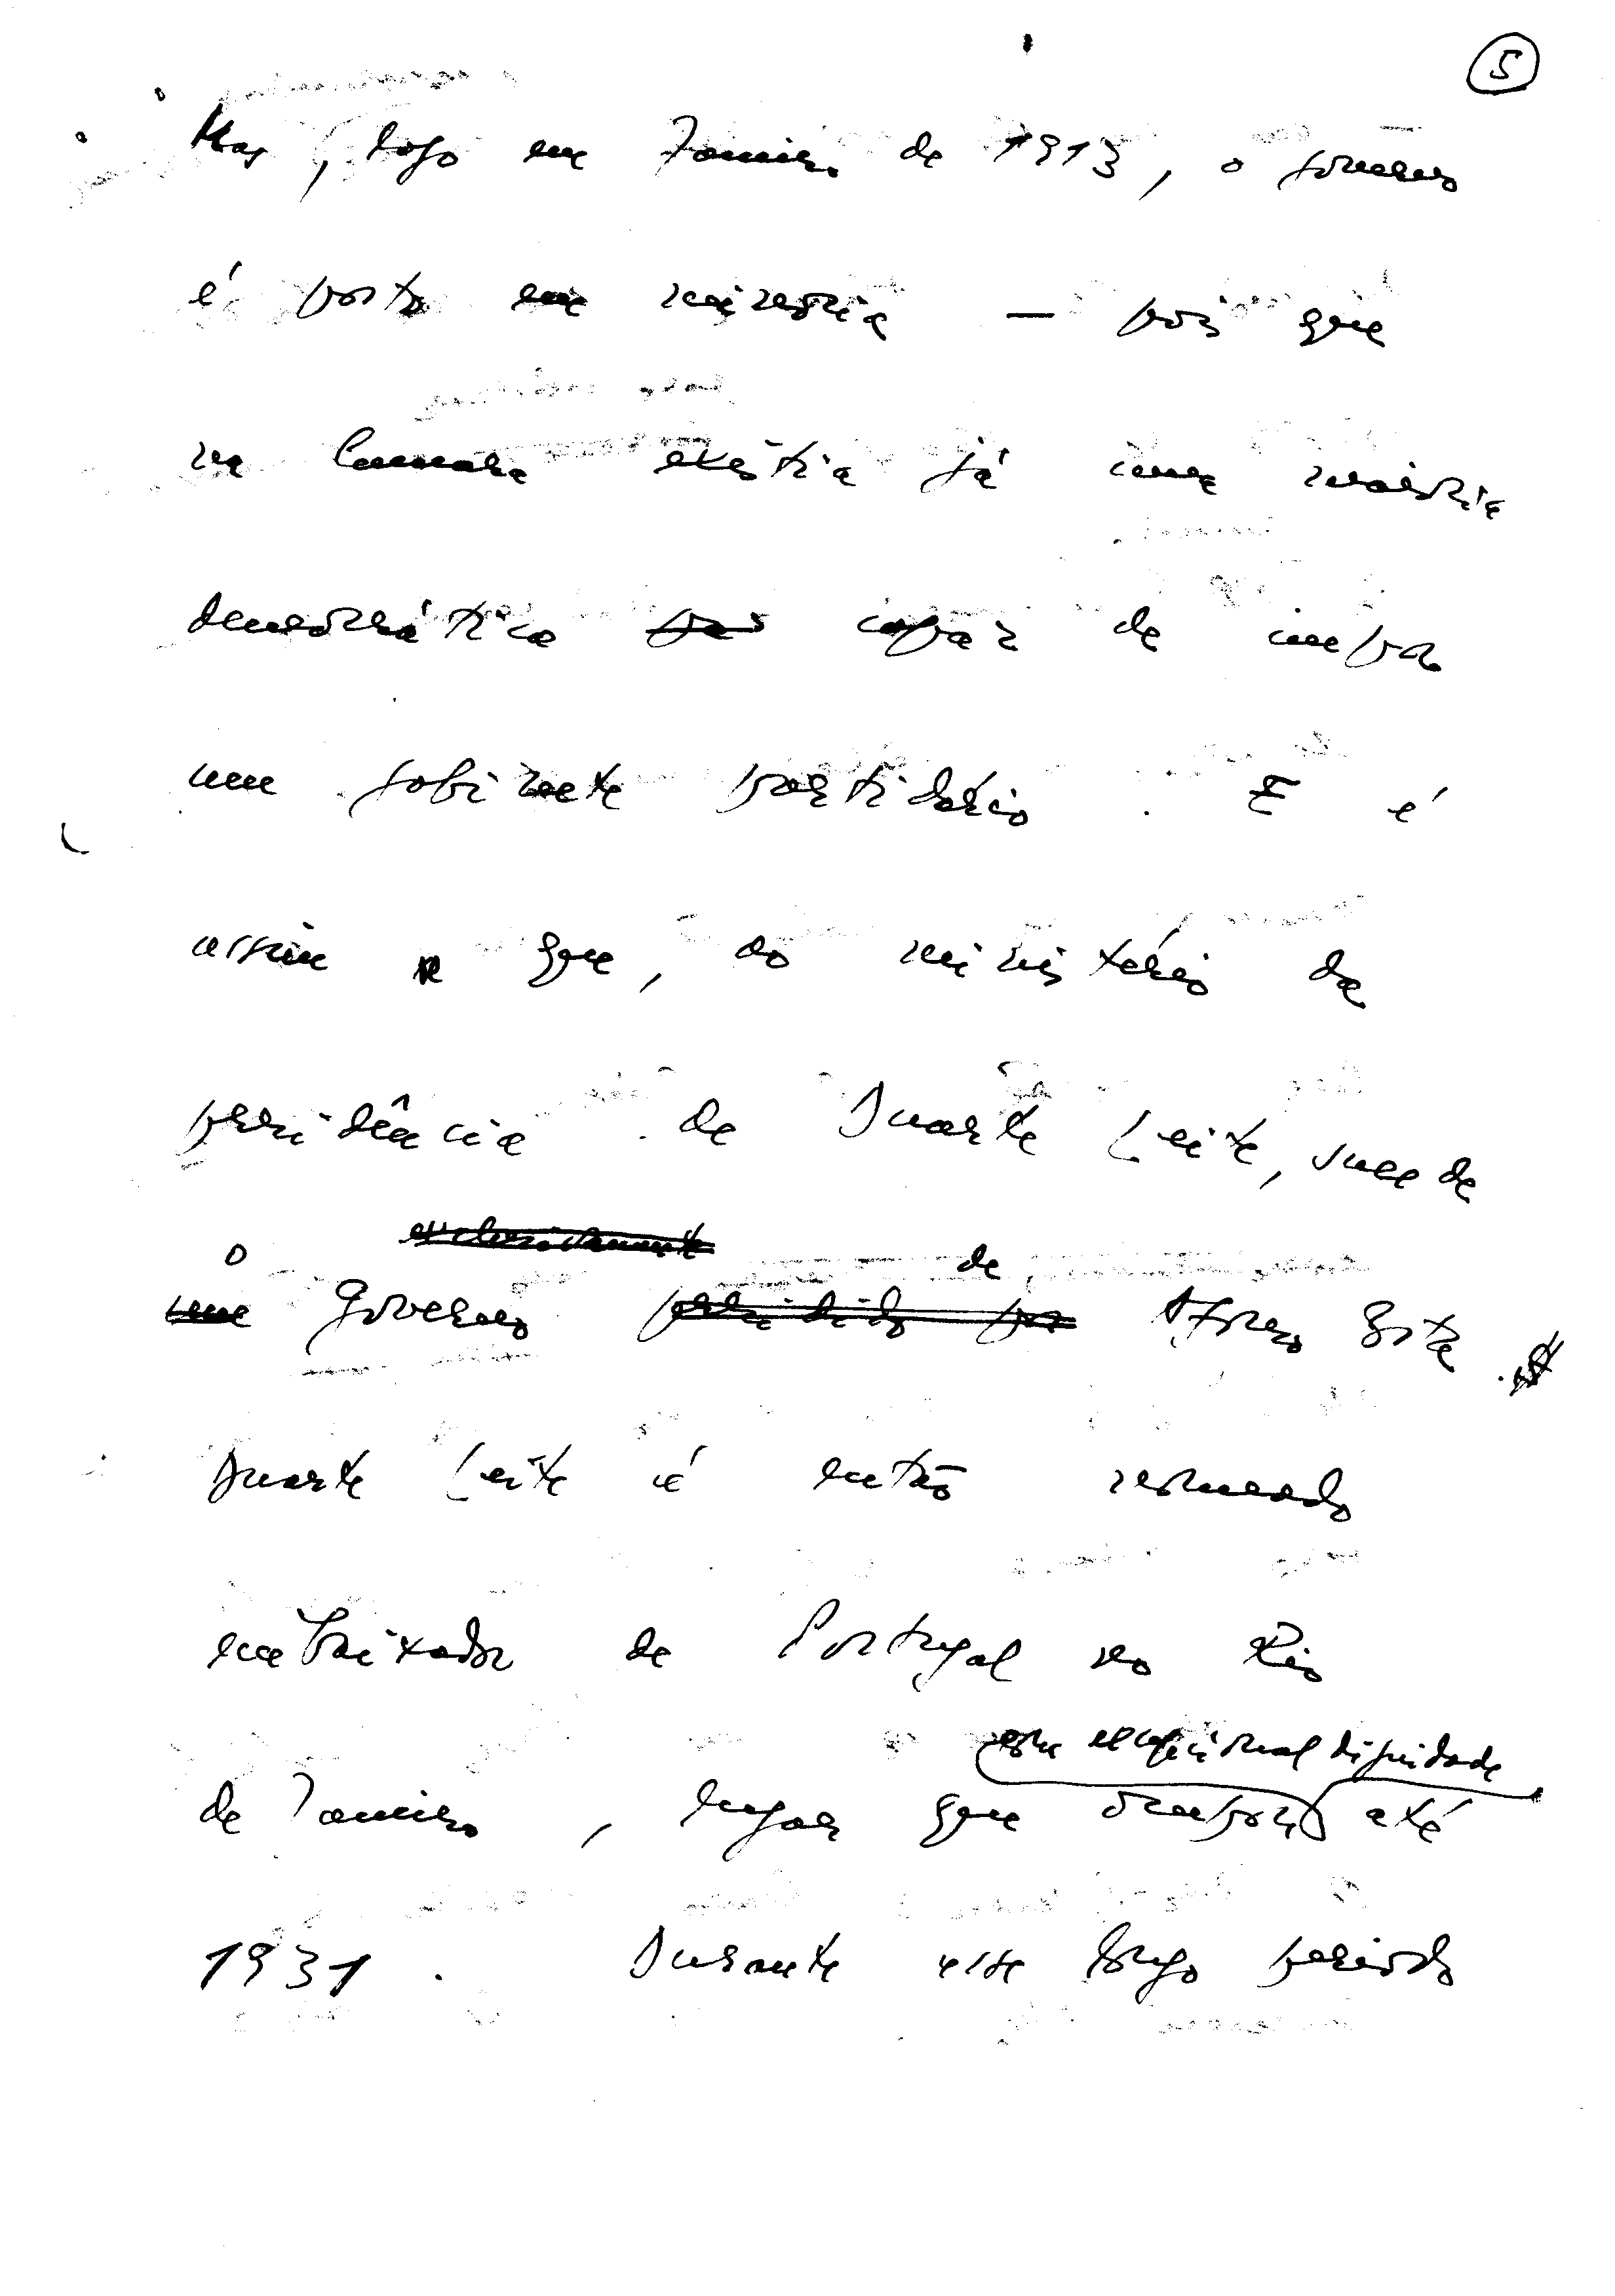 5
Mas, logo em Janeiro de 1913, o governo
é posto em minoria — pois que
na Camara existia já uma maioria
democrática por capaz de impor
um gabinete partidário. E é
assim que, ao ministério da
presidência de Duarte Leite, sucede
o exclusivamente de
um Governo presidido por Afonso Costa.
Duarte Leite é então nomeado
embaixador de Portugal no Rio
com excepcional dignidade
de Janeiro, lugar que ocupou até
1931. Durante esse longo período